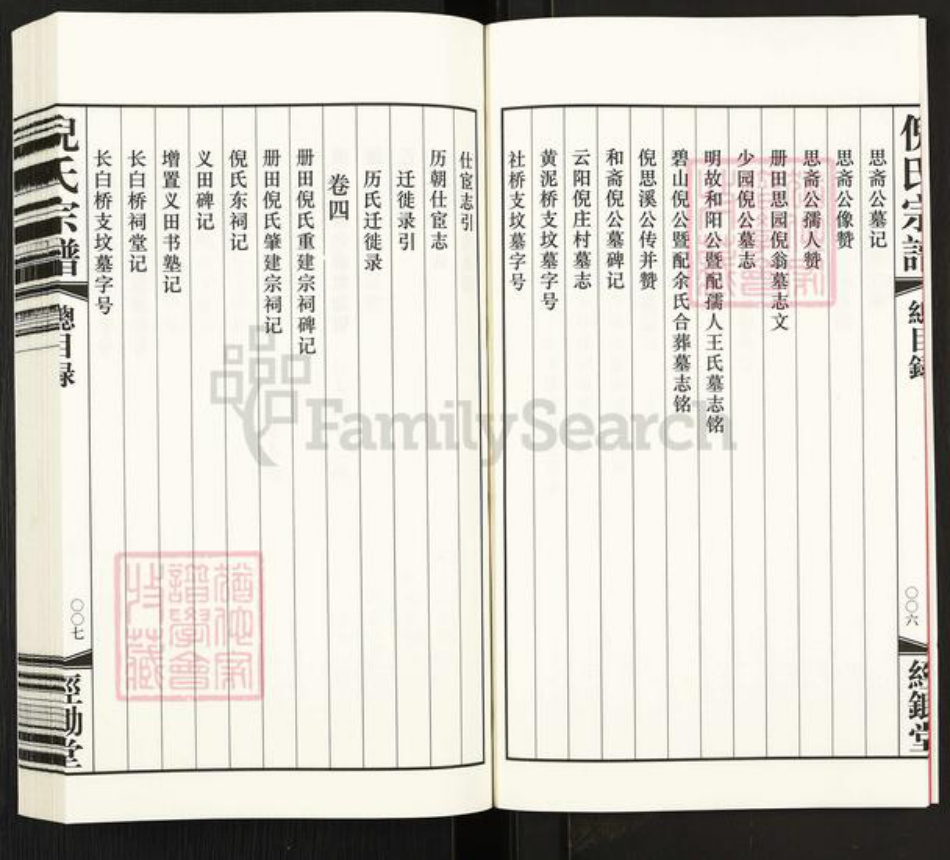 思斋公墓记
思斋公像赞
思斋公孺人赞
册田思园倪翁墓志文
少园倪公墓志
明故和阳公暨配孺人王氏墓志铭
碧山倪公暨配余氏合葬墓志铭
倪思溪公传并赞
和斋倪公墓碑记
云阳倪庄村墓志
黄泥桥支坟墓字号
社桥支坟墓字号
〇〇六
仕宦志引
历朝仕宦志
迁徙录引
历氏迁徙录
卷四
册田倪氏重建宗祠碑记
册田倪氏肇建宗祠记
倪氏东祠记
义田碑记
增置义田书塾记
长白桥祠堂记
长白桥支坟墓字号
倪氏宗譜
總目录
〇〇七
FamilySearch
譜學會
收藏